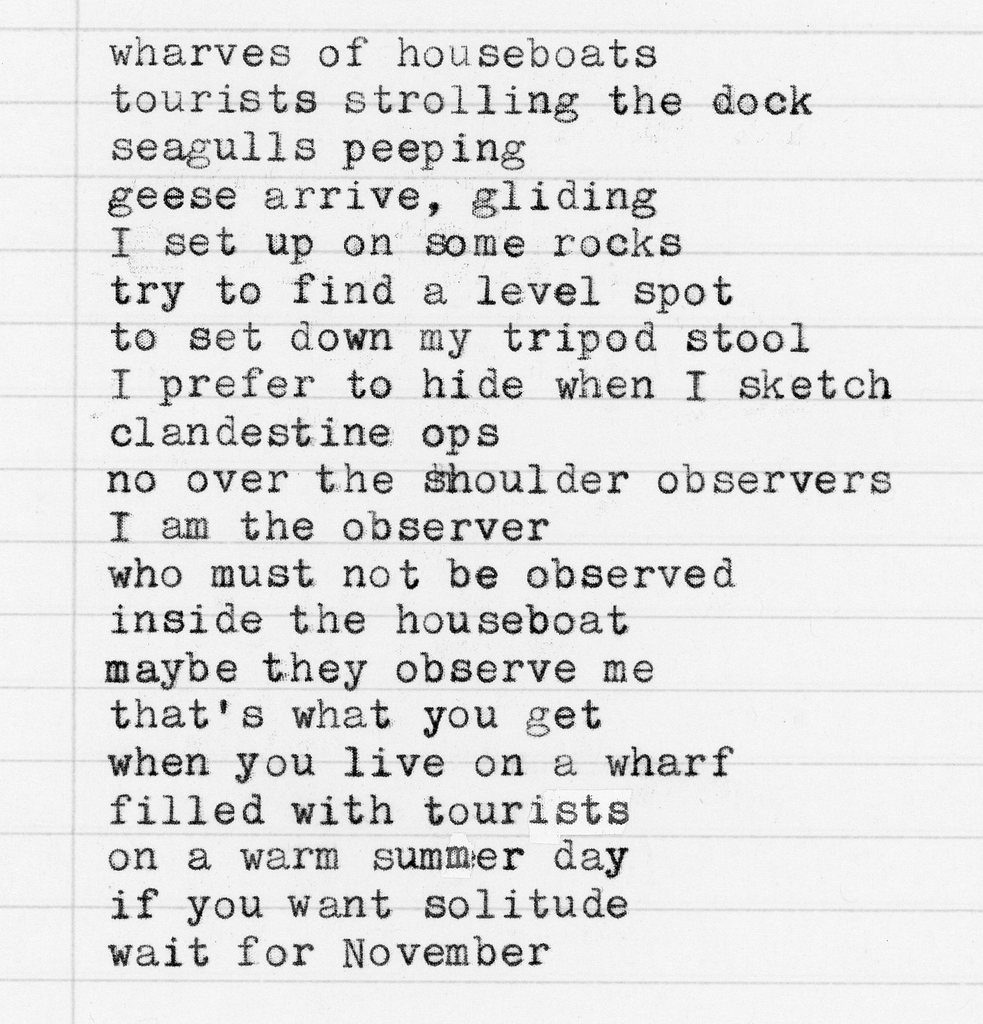 wharves of houseboats
tourists strolling the dock
seagulls peeping
geese arrive, gliding
I set up on some rocks
try to find a level spot
to set down my tripod stool
I prefer to hide when I sketch
clandestine ops
no over the shoulder observers
I am the observer
who must not be observed
inside the houseboat
maybe they observe me
that's what you get
when you live on a wharf
filled with tourists
on a warm summer day
if you want solitude
wait for November